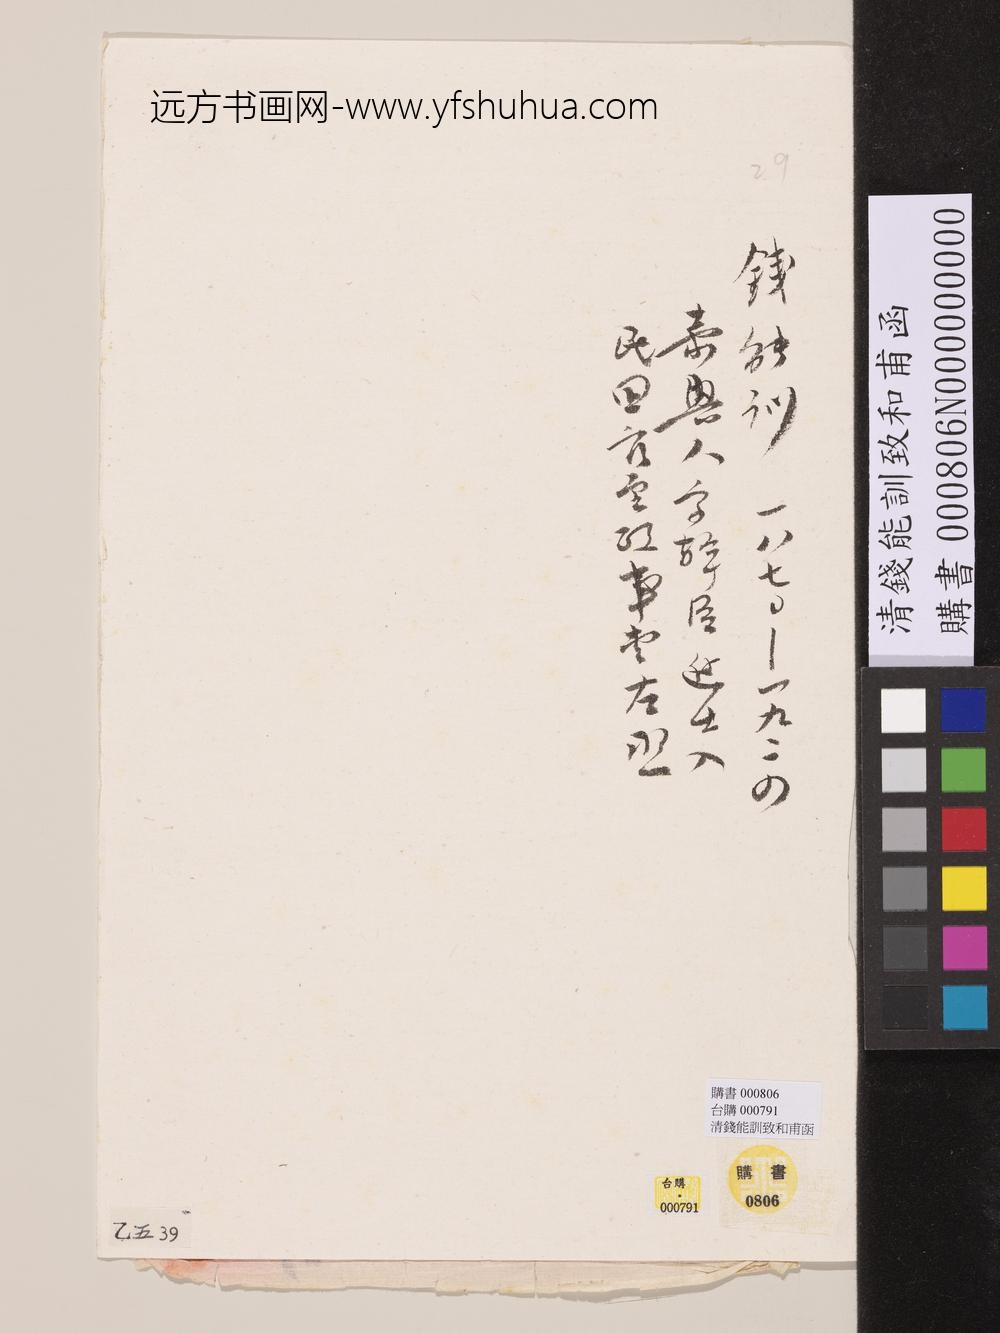 远方书画网-www.yfshuhua.com
29
錢能訓 一八七〇—一九二四
嘉興人字幹臣進士入
民国官至政事堂左丞
清錢能訓致和甫函
購書 000806N000000000
購書 000806
台購 000791
清錢能訓致和甫函
購書
0806
台購
000791
乙五 39